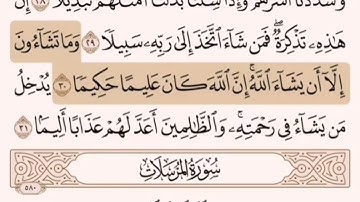 وَشَدَدْنَآ أَسْرَهُمْ وَإِذَا شِئْنَا بَدَّلْنَآ أَمْثَٰلَهُمْ تَبْدِيلًا ٢٨ إِنَّ
هَٰذِهِۦ تَذْكِرَةٌ فَمَن شَآءَ ٱتَّخَذَ إِلَىٰ رَبِّهِۦ سَبِيلًا ٢٩ وَمَا تَشَآءُونَ
إِلَّآ أَن يَشَآءَ ٱللَّهُ إِنَّ ٱللَّهَ كَانَ عَلِيمًا حَكِيمًا ٣٠ يُدْخِلُ
مَن يَشَآءُ فِى رَحْمَتِهِۦ وَٱلظَّٰلِمِينَ أَعَدَّ لَهُمْ عَذَابًا أَلِيمًۢا ٣١
سُورَةُ المُرْسَلَات
٥٨٠